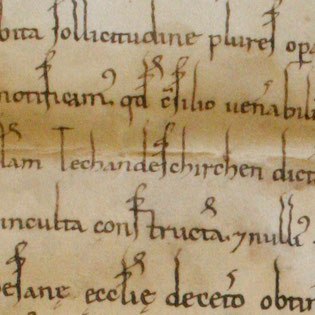 bita sollicitudine plures op
notificam⁹ qđ ꝯsilio uen̄abili
lam Techandeschirchen dict
inculta constructa ⁊ null⁹
esanę ecclię decet̄o obtin